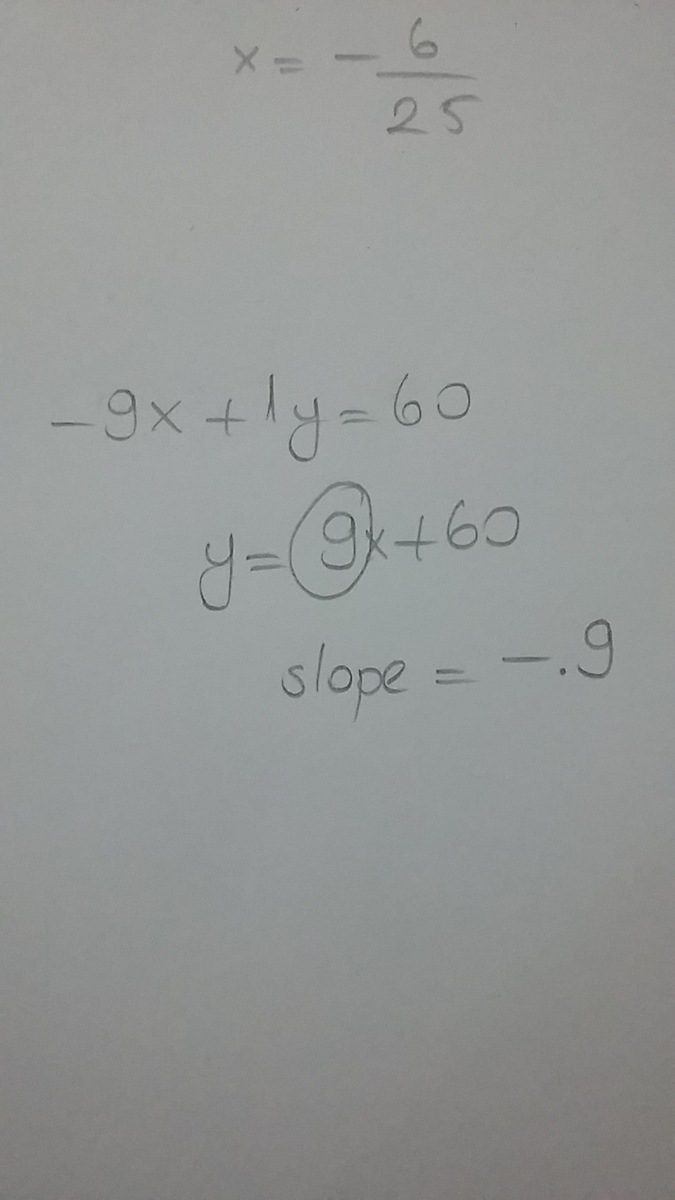 x = - 6/25
-9x + 1y = 60
y = 9x + 60
slope = -.9